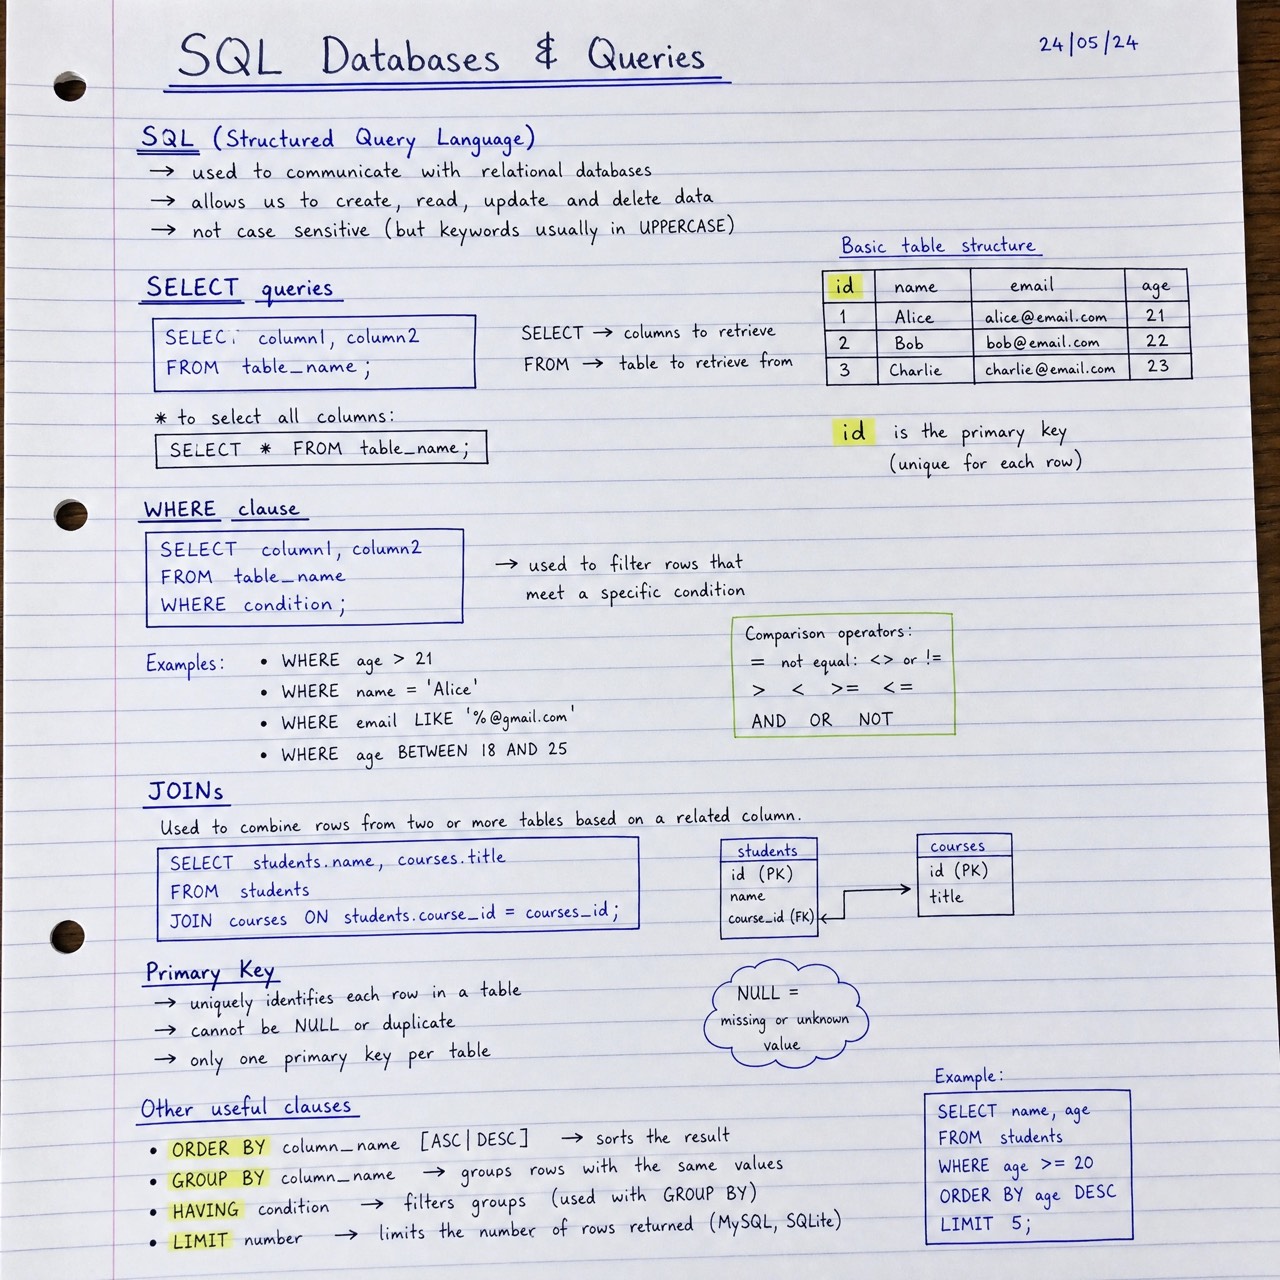 SQL Databases & Queries
24/05/24
SQL (Structured Query Language)
→ used to communicate with relational databases
→ allows us to create, read, update and delete data
→ not case sensitive (but keywords usually in UPPERCASE)
Basic table structure
id name email age
1 Alice alice@email.com 21
2 Bob bob@email.com 22
3 Charlie charlie@email.com 23
id is the primary key
(unique for each row)
SELECT queries
column1, column2
FROM table_name;
SELECT → columns to retrieve
FROM → table to retrieve from
* to select all columns:
SELECT * FROM table_name;
WHERE clause
SELECT column1, column2
FROM table_name
WHERE condition;
→ used to filter rows that
meet a specific condition
Examples:
• WHERE age > 21
• WHERE name = 'Alice'
• WHERE email LIKE '%@gmail.com'
• WHERE age BETWEEN 18 AND 25
Comparison operators:
= not equal: <> or !=
> < >= <=
AND OR NOT
JOINs
Used to combine rows from two or more tables based on a related column.
SELECT students.name, courses.title
FROM students
JOIN courses ON students.course_id = courses_id;
students
id (PK)
name
course_id (FK)
courses
id (PK)
title
Primary Key
→ uniquely identifies each row in a table
→ cannot be NULL or duplicate
→ only one primary key per table
NULL =
missing or unknown
value
Other useful clauses
• ORDER BY column_name [ASC|DESC] → sorts the result
• GROUP BY column_name → groups rows with the same values
• HAVING condition → filters groups (used with GROUP BY)
• LIMIT number → limits the number of rows returned (MySQL, SQLite)
Example:
SELECT name, age
FROM students
WHERE age >= 20
ORDER BY age DESC
LIMIT 5;